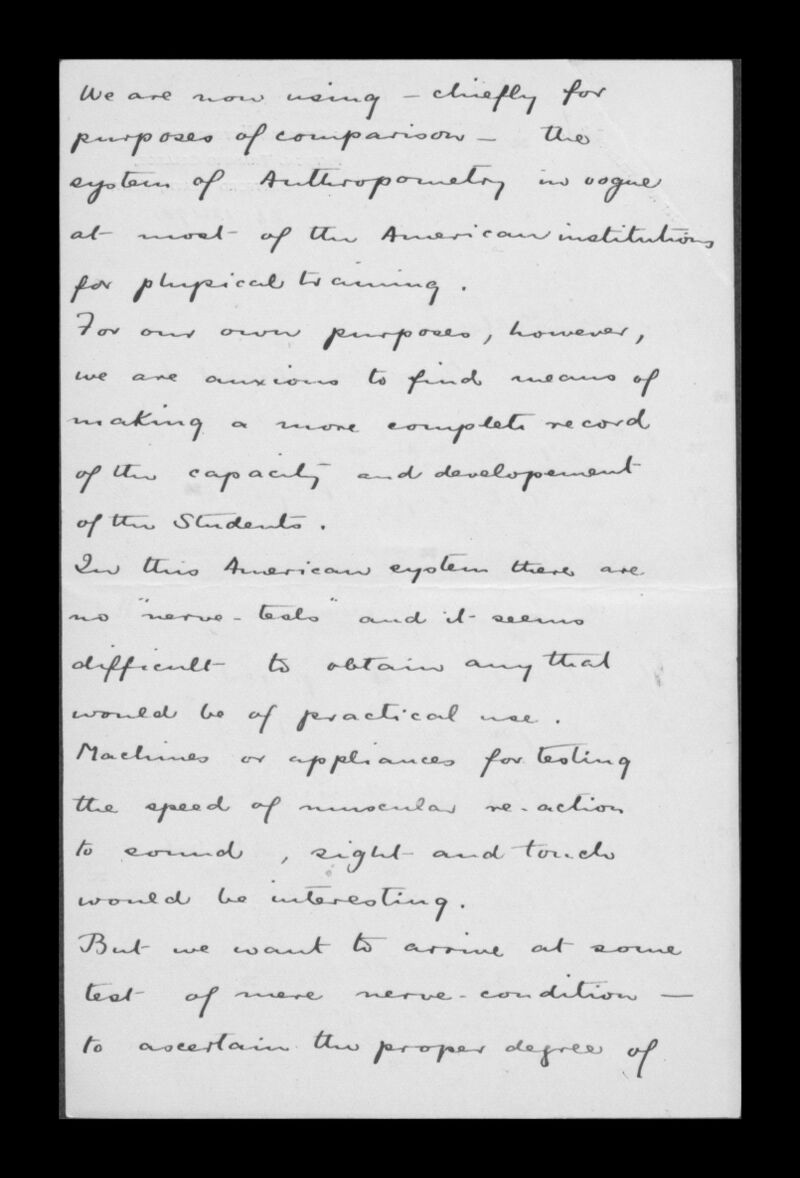 We are now using - chiefly for
purposes of comparison - the
system of Anthropometry in vogue
at most of the American institutions
for physical training.
For our own purposes, however,
we are anxious to find means of
making a more complete record
of the capacity and developement
of the Students.
In this American system there are
no "nerve-tests" and it seems
difficult to obtain any that
would be of practical use.
Machines or appliances for testing
the speed of muscular re-action
to sound, sight and touch
would be interesting.
But we want to arrive at some
test of mere nerve-condition —
to ascertain the proper degree of